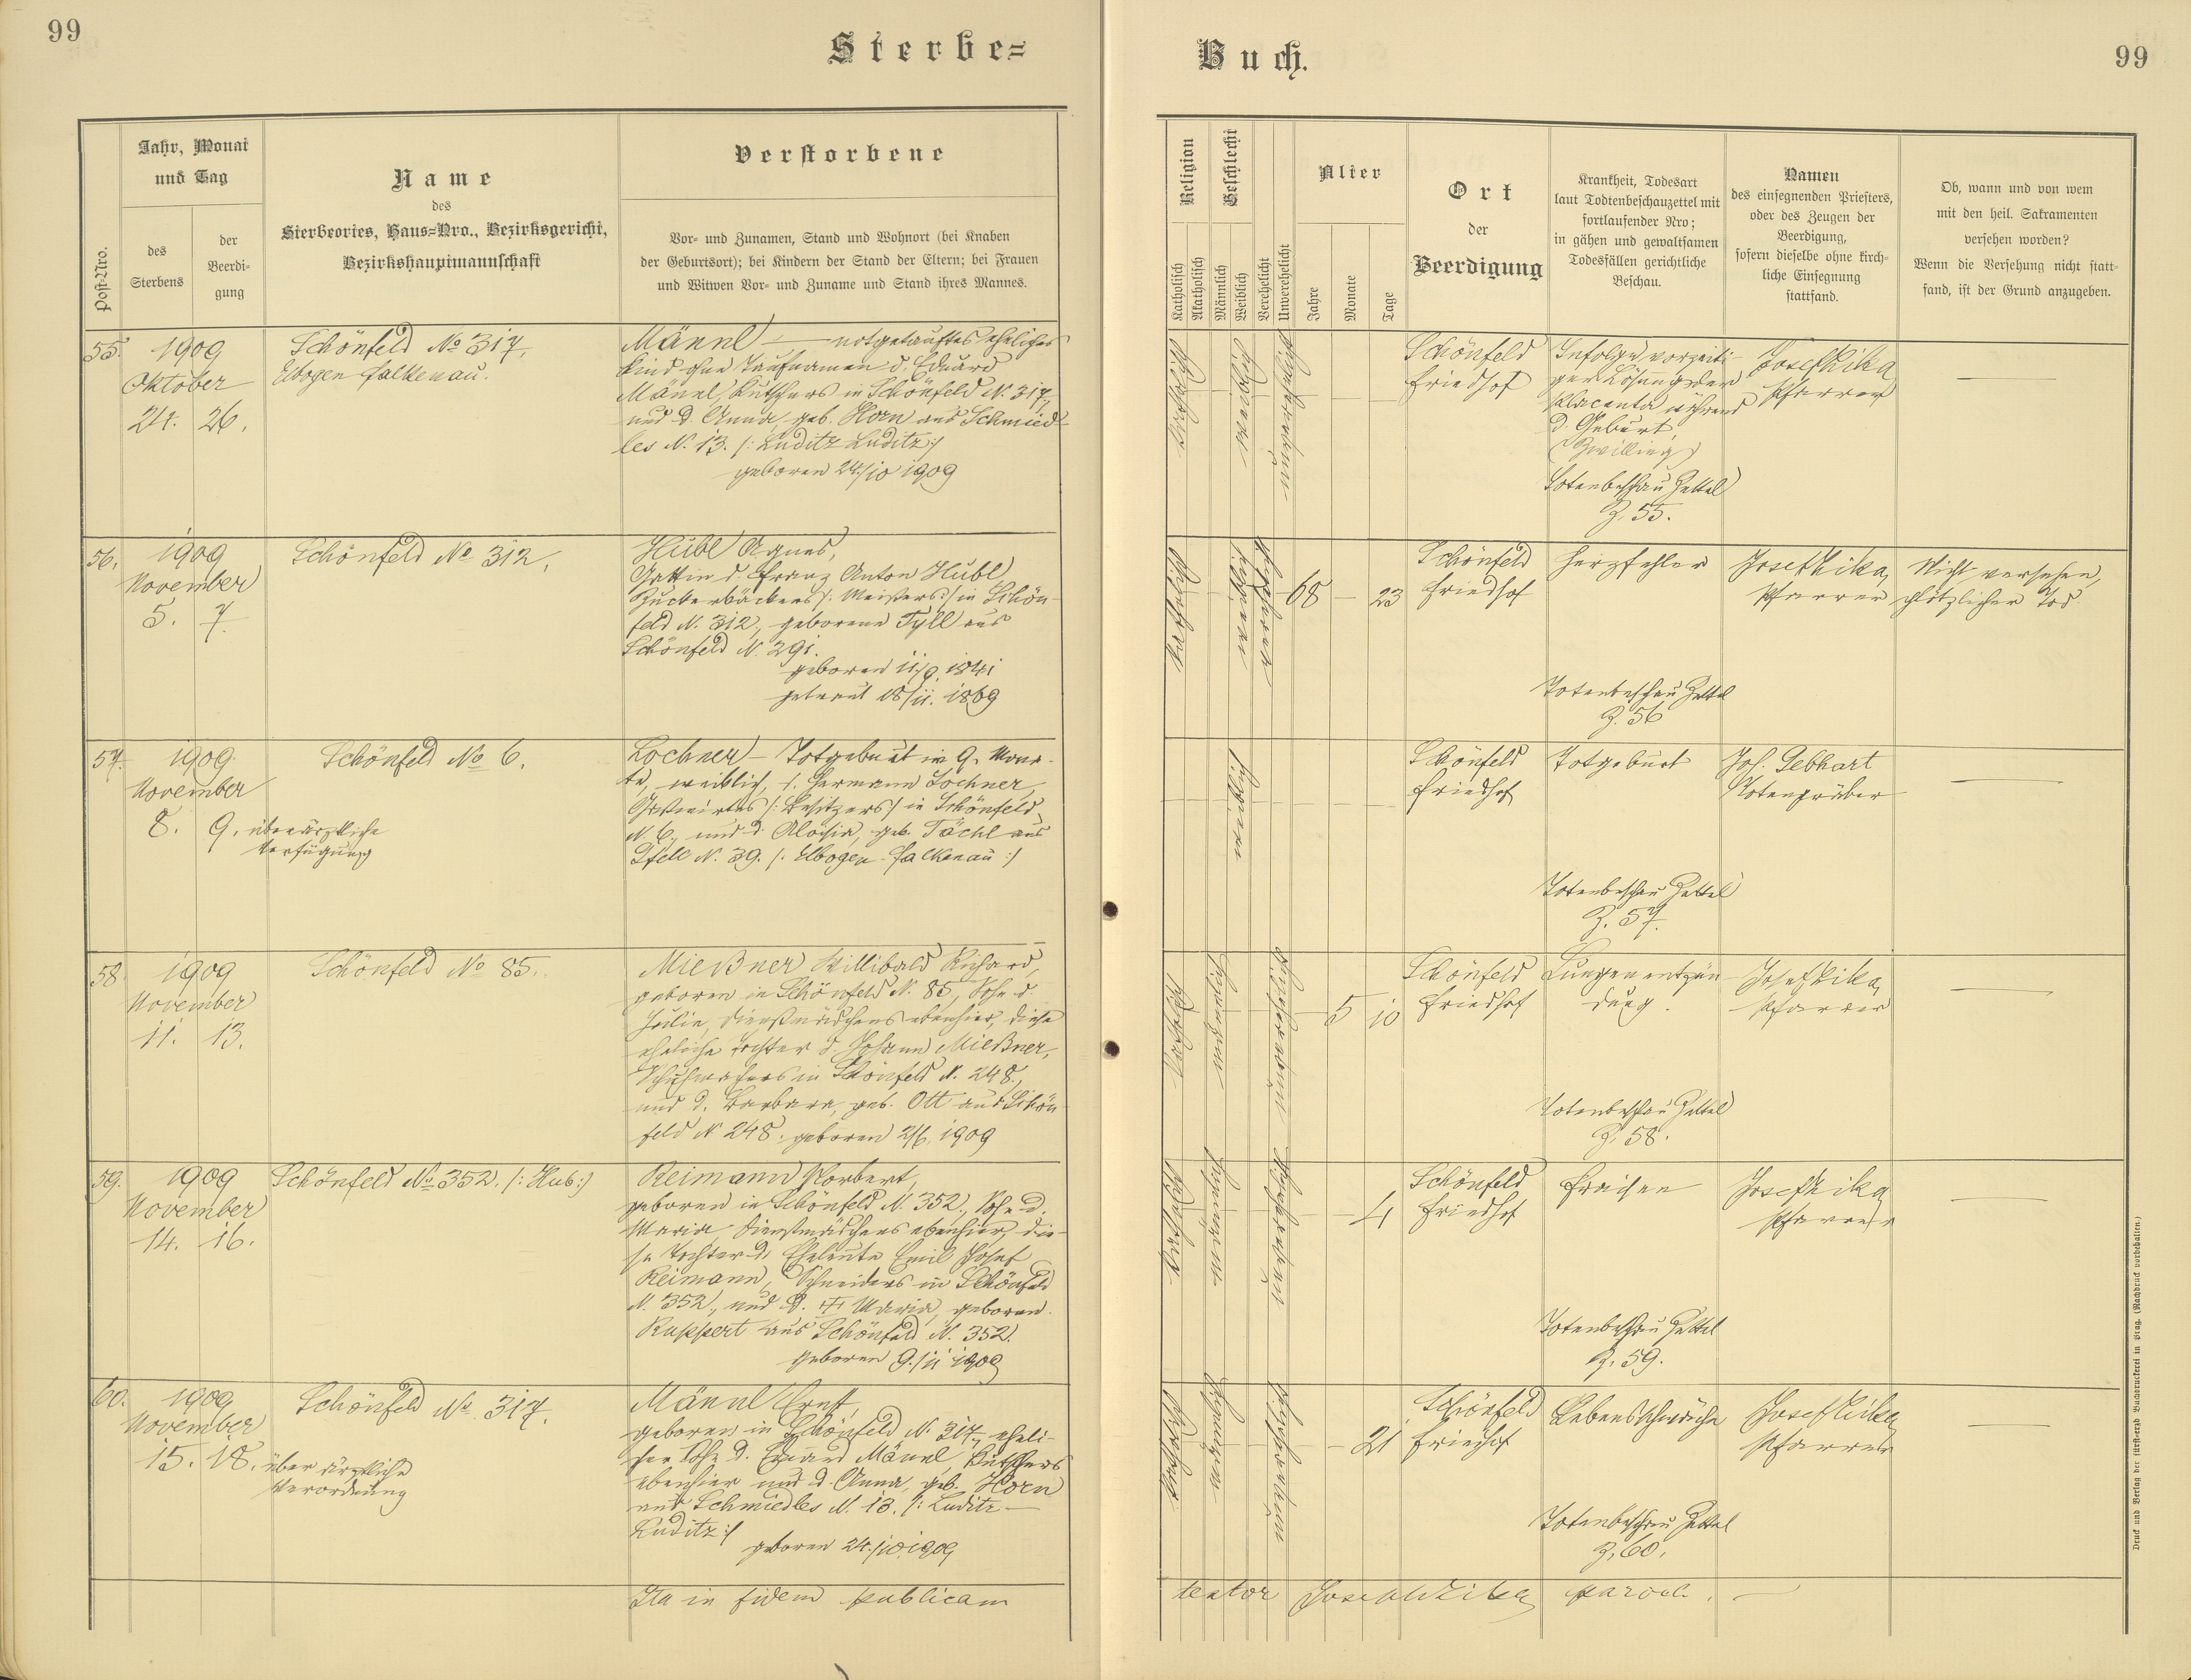 99
Sterbe=
Buch.
99
Post-Nro.
Jahr, Monat
und Tag
des
Sterbens
der
Beerdi-
gung
Name
des
Sterbeortes, Haus=Nro., Bezirksgericht,
Bezirkshauptmannschaft
Verstorbene
Vor- und Zunamen, Stand und Wohnort (bei Knaben
der Geburtsort); bei Kindern der Stand der Eltern; bei Frauen
und Witwen Vor- und Zuname und Stand ihres Mannes.
Religion
Katholisch
Akatholisch
Geschlecht
Männlich
Weiblich
Verehelicht
Unverehelicht
Alter
Jahre
Monate
Tage
Ort
der
Beerdigung
Krankheit, Todesart
laut Todtenbeschauzettel mit
fortlaufender Nro;
in gähen und gewaltsamen
Todesfällen gerichtliche
Beschau.
Namen
des einsegnenden Priesters,
oder des Zeugen der
Beerdigung,
sofern dieselbe ohne kirch-
liche Einsegnung
stattfand.
Ob, wann und von wem
mit den heil. Sakramenten
versehen worden?
Wenn die Versehung nicht statt-
fand, ist der Grund anzugeben.
55.
1909
Oktober
24. 26.
Schönfeld No 317.
Elbogen Falkenau.
Männl — notgetauftes eheliches
Kind ohne Taufnamen d. Eduard
Männl, Kutschers in Schönfeld N. 317,
und d. Anna, geb. Horn aus Schmied-
les N. 13. /: Luditz Luditz :/
geboren 24/10 1909
katholisch
weiblich
unverehelicht
Schönfeld
Friedhof
Infolge vorzeiti-
ger Lösung der
Placenta während
d. Geburt
(Zwilling)
Totenbeschau Zettel
Z. 55.
Josef Zika
Pfarrer
—
56.
1909
November
5. 7.
Schönfeld No 312.
Hübl Agnes,
Gattin d. Franz Anton Hübl
Zuckerbäckers /: Meisters :/ in Schön-
feld N. 312., geborene Tyll aus
Schönfeld N. 291.
geboren 11/9. 1841
getraut 18/11. 1869
katholisch
weiblich
verehelicht
68 — 23
Schönfeld
Friedhof
Herzfehler
Totenbeschau Zettel
Z. 56
Josef Zika,
Pfarrer
Nicht versehen,
plötzlicher Tod.
57.
1909.
November
8. 9. über ärztliche
Verfügung
Schönfeld No 6.
Lochner — Totgeburt im 9. Mona-
te, weiblich, d. Hermann Lochner,
Gastwirtes /: Besitzers :/ in Schönfeld
N. 6., und d. Aloisia, geb. Tächl aus
N. 39. /: Elbogen-Falkenau :/
weiblich
Schönfeld
Friedhof
Totgeburt
Totenbeschau Zettel
Z. 57.
Jos. Gebhart
Totengräber
—
58.
1909
November
11. 13.
Schönfeld No 85.
Mießner Willibald Richard,
geboren in Schönfeld N. 85, Sohn d.
Dienstmädchens ebenhier, diese
eheliche Tochter d. Johann Mießner,
Schuhmachers in Schönfeld N. 248.,
und d. Barbara, geb. Ott aus Schön-
feld N 248. geboren 2/6. 1909
katholisch
männlich
unverehelicht
5 10
Schönfeld
Friedhof
Lungenentzün-
dung.
Totenbeschau Zettel
Z. 58.
Josef Zika,
Pfarrer
—
59.
1909
November
14. 16.
Schönfeld No 352. /: Hub :/
Reimann Norbert,
geboren in Schönfeld N. 352., Sohn d.
Maria, Dienstmädchens ebenhier, die-
se Tochter d. Eheleute Emil Josef
Reimann, Schneiders in Schönfeld
N. 352., und d. † Maria, geboren.
Ruppert aus Schönfeld N. 352.
geboren 9./11 1909
katholisch
männlich
unverehelicht
— 4
Schönfeld
Friedhof
Fraisen
Totenbeschau Zettel
Z. 59.
Josef Zika
Pfarrer
—
60.
1909
November
15. 18. über ärztliche
Verordnung
Schönfeld No 317.
Männl Ernst,
geboren in Schönfeld N. 317., eheli-
cher Sohn d. Eduard Männl, Kutschers
ebenhier und d. Anna, geb. Horn
aus Schmiedles N. 13. /: Luditz —
Luditz :/
geboren 24./10 1909
katholisch
männlich
unverehelicht
— 21
Schönfeld
Friedhof
Lebensschwäche
Totenbeschau Zettel
Z. 60.
Josef Zika
Pfarrer
—
Ita in fidem publicam
testor Joseph Zika, paroch.
Druck und Verlag der fürst-erzb Buchdruckerei in Prag. (Nachdruck vorbehalten.)